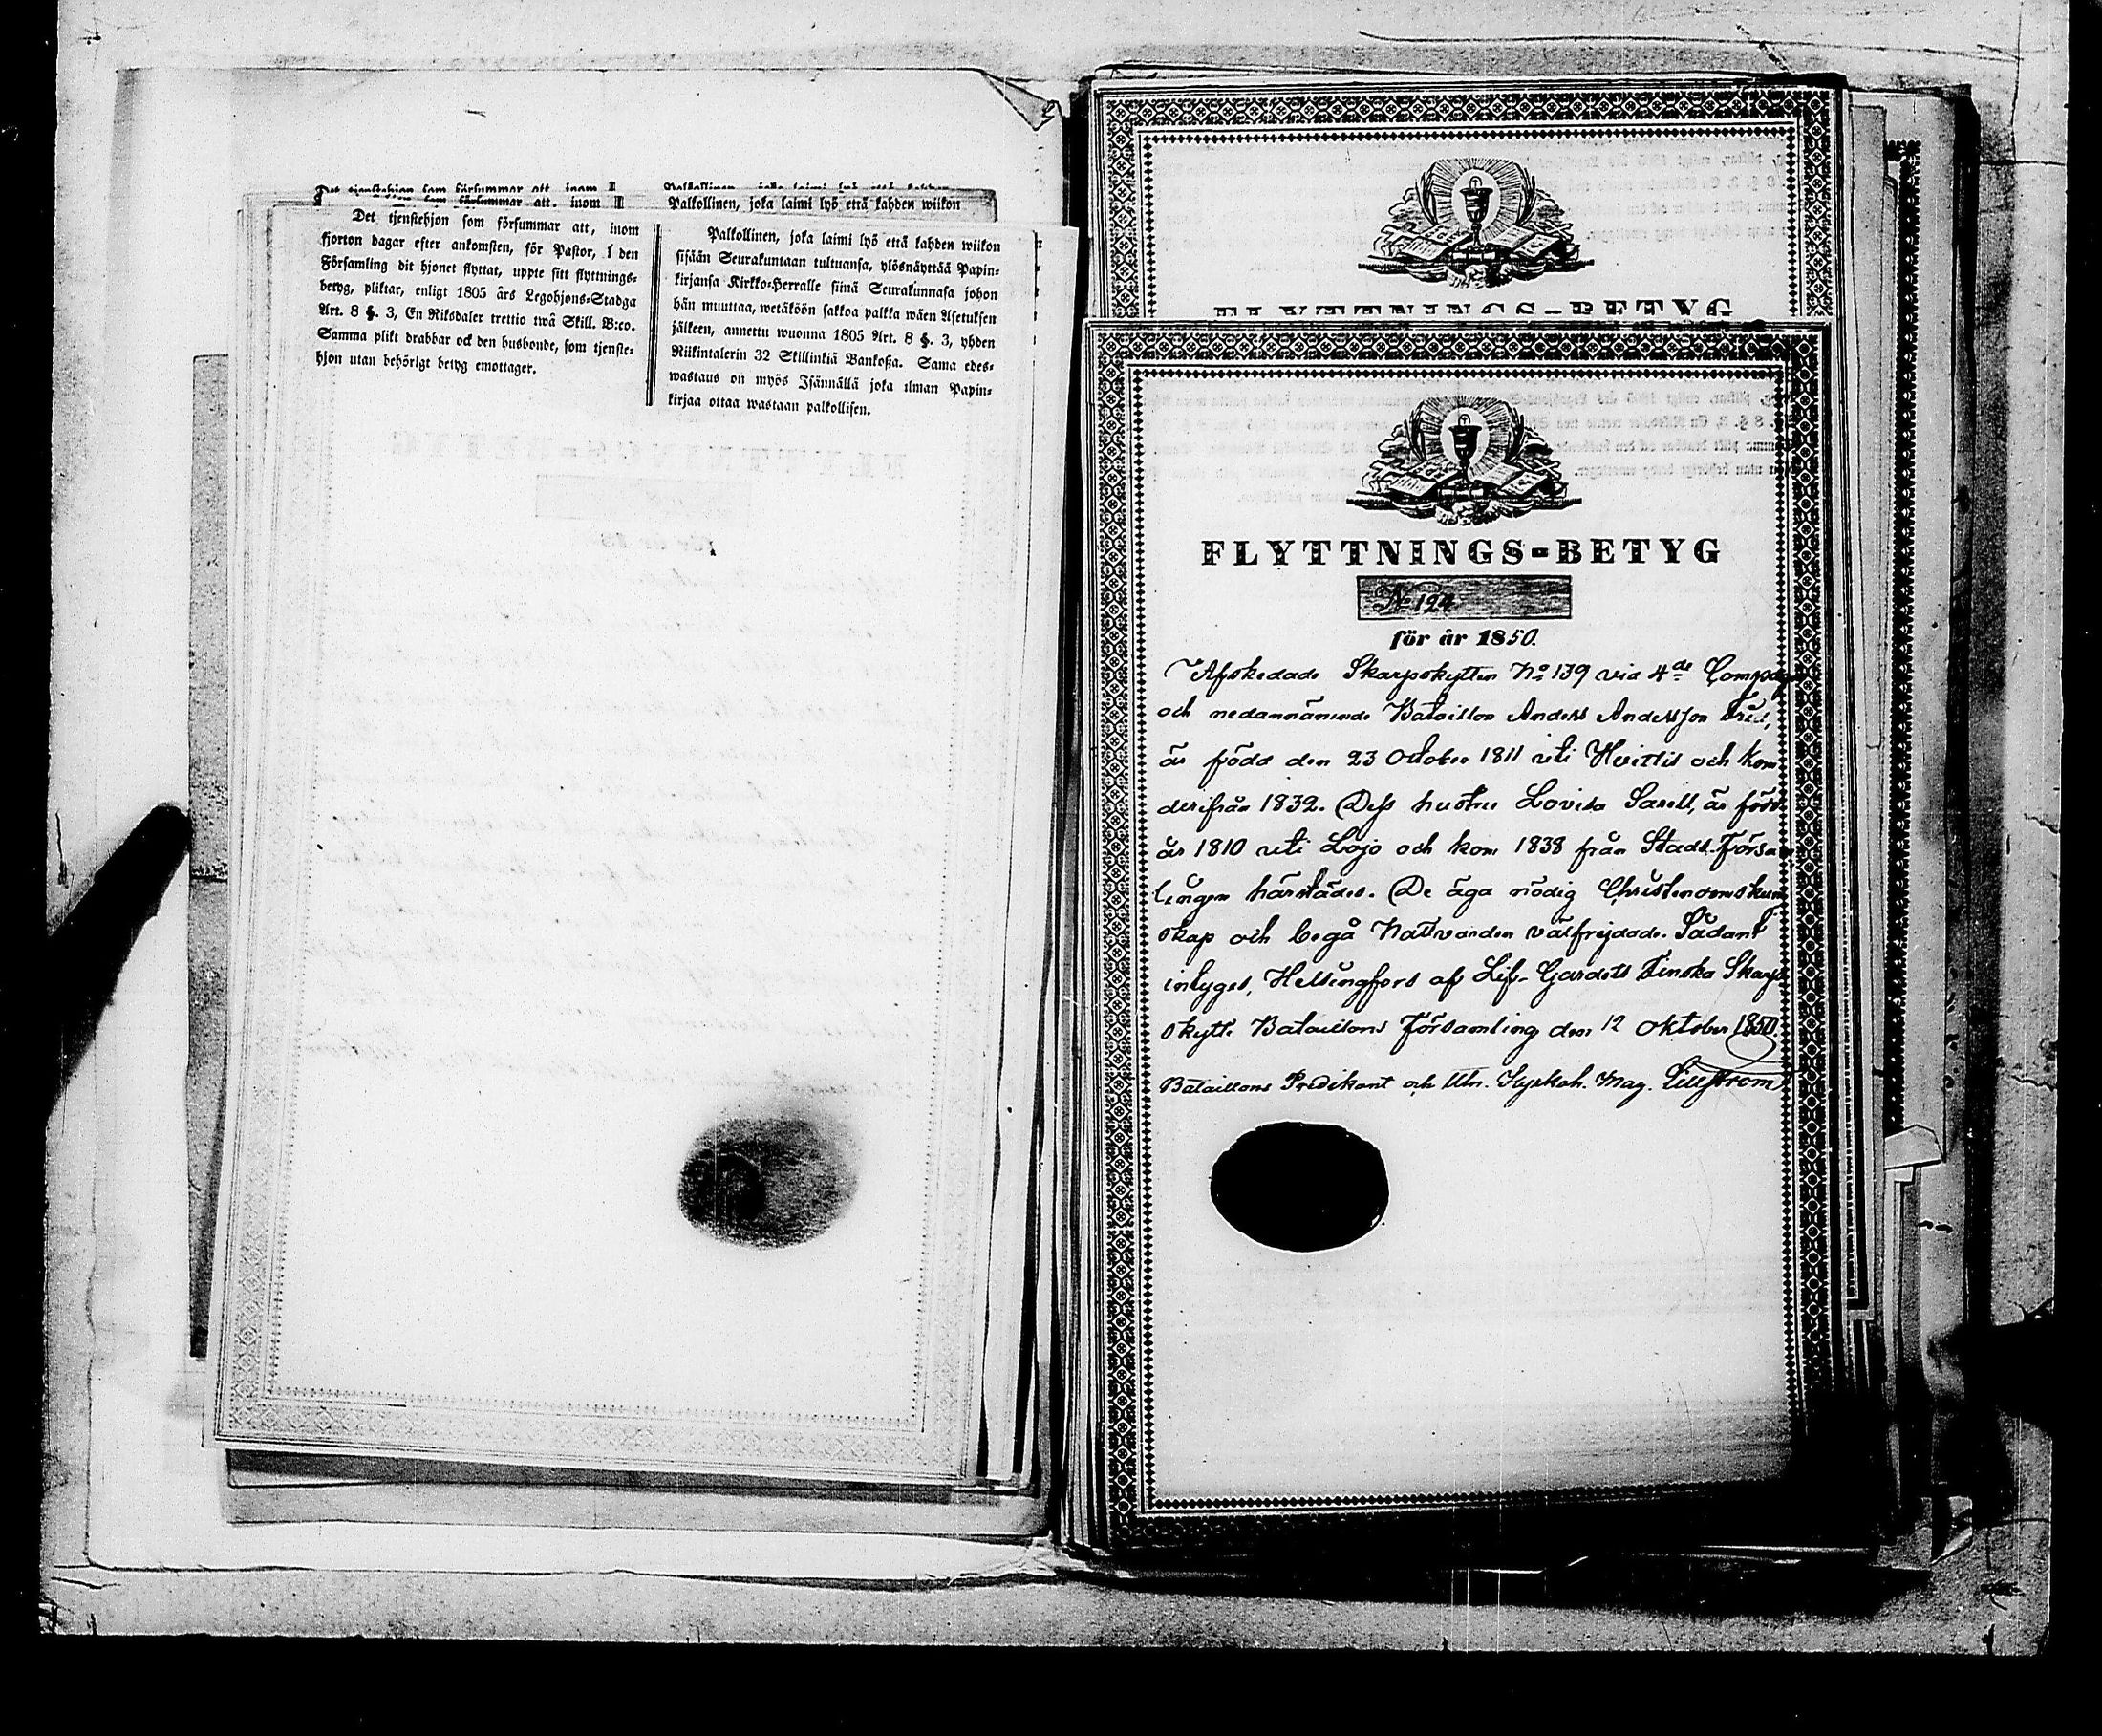 Det tjenstehjon som försummar att, inom
fjorton dagar efter ankomsten, för Pastor, i den
Församling dit hjonet flyttat, uppte sitt flyttnings-
betyg, pliktar, enligt 1805 års Legohjons-Stadga
Art. 8 §. 3, En Riksdaler trettio twå Skill. B:co.
Samma plikt drabbar ock den husbonde, som tjenste-
hjon utan behörigt betyg emottager.
Palkollinen, joka laimi lyö että kahden wiikon
Palkollinen, joka laimi lyö että kahden wiikon
sisään Seurakuntaan tultuansa, ylösnäyttää Papin-
kirjansa Kirkko-Herralle siinä Seurakunnasa johon
hän muuttaa, wetäköön sakkoa palkka wäen Asetuksen
jälkeen, annettu wuonna 1805 Art. 8 §. 3, yhden
Riikintalerin 32 Skillinkiä Bankosa. Sama edes-
wastaus on myös Isännällä joka ilman Papin-
kirjaa ottaa wastaan palkollisen.
FLYTTNINGS-BETYG
FLYTTNINGS-BETYG
No 124
för år 1850.
Afskedade Skarpskytten No 139 vid 4de Compag
och nedannämnde Bataillon Anders Andersson
är född den 23 October 1811 uti Hvittis och kom
derifrån 1832. Dess hustru Lovisa Sarell, är född
år 1810 uti Lojo och kom 1838 från Stads-Försa
lingen härstädes. De äga nödig Christendomskun
skap och begå Nattvarden välfrejdade. Sådant
intygas, Helsingfors af Lif-Gardets Finska Skarp
skytte Bataillons Församling den 12 Oktober 1850.
Bataillons Predikant och Utn. Kyrkoh. Mag. Lillström